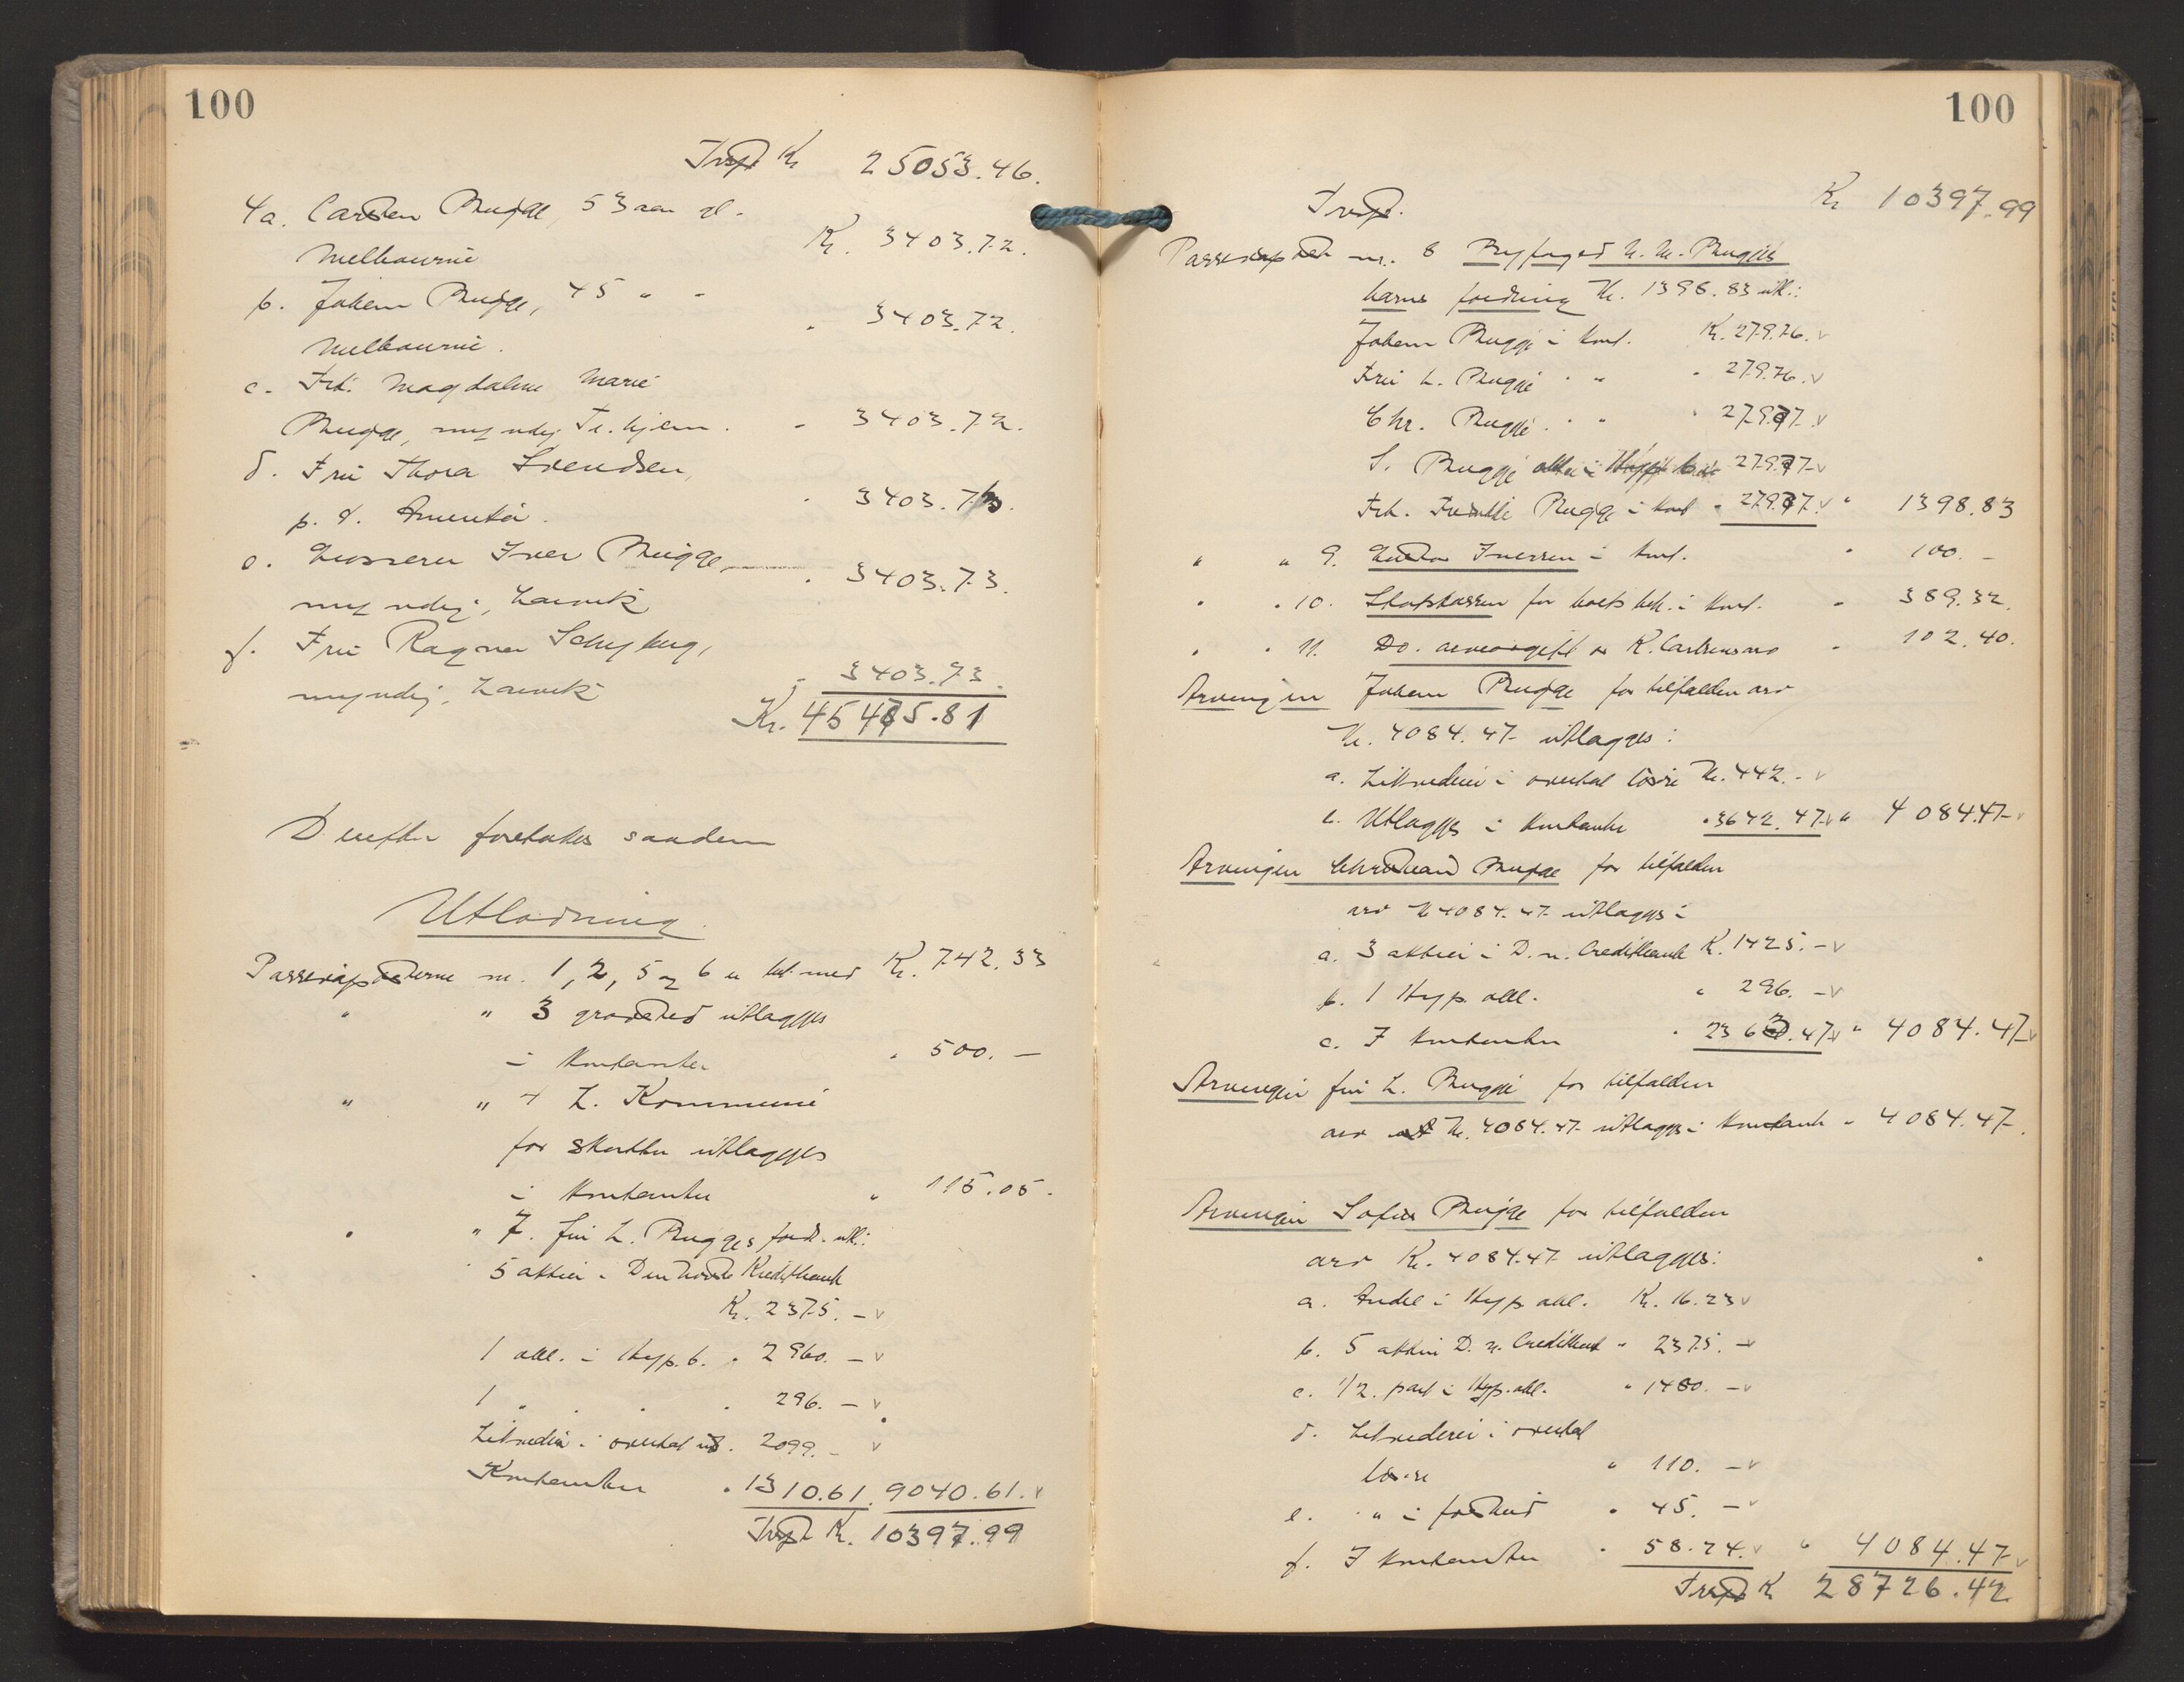 100
Trsp Kr 25053.46.
4a. Carsten Bugge, 53 aar gl.
Melbourne Kr. 3403.72.
b. Johan Bugge, 45 " "
Melbourne. " 3403.72.
c. Frk. Magdalene Marie
Bugge, myndig Tr.hjem. " 3403.72.
d. Fru Thora Svendsen,
p. t. Amerika. " 3403.73.
e. Iver Bugge,
myndig, Larvik " 3403.73.
f. Fru Ragna
myndig, Larvik " 3403.73.
Kr. 45475.81
Derefter foretokes saadan
Utlodning.
Passivaposterne nr. 1, 2, 5 og 6 er med Kr. 742.33
" " 3 gravsted utlægges
i kontanter " 500. —
" " 4 L. Kommune
for skatter utlægges
i kontanter " 115.05.
" " 7. fru L. Bugges ford. utl.:
5 aktier i Den norske Kreditbank
Kr. 2375. — v
1 obl. i Hyp. b. " 2960. — v
1 " " " 296. — v
i overtal 2099. — v
Kontanter " 1310.61. 9040.61. v
Trsp Kr. 10397.99
100
Trsp. Kr 10397.99
Passivapost nr. 8 Byfoged N. M. Bugges
barns fordring Kr. 1398.83 utl.:
Johan Bugge i kont. Kr. 279.76. v
Fru L. Bugge " " " 279.76. v
Chr. Bugge " " " 279.77. v
S. Bugge 279.77 v
Frk. Bugge i kont " 279.77. v " 1398.83
" " 9. Iversen i kont. " 100. —
" " 10. Statskassen for boets beh. i kont. " 389.32.
" " 11. Do. arveavgift av K. Carlsens arv " 102.40.
Arvingen Johan Bugge for tilfalden arv
Kr. 4084.47 utlægges:
a. i overtal løsøre Kr. 442. — v
b. Utlægges i kontanter " 3642.47 v " 4084.47 v
Arvingen Christian Bugge for tilfalden
arv Kr 4084.47 utlægges i
a. 3 aktier i D. n. Creditbank Kr. 1425. — v
b. 1 Hyp. obl. " 296. — v
c. I kontanter " 2363.47 v " 4084.47 v
Arvingen fru L. Bugge for tilfalden
arv Kr. 4084.47 utlægges i kontant " 4084.47.
Arvingen Sofus Bugge for tilfalden
arv Kr. 4084.47 utlægges:
a. Andel i Hyp obl. Kr. 16.23 v
b. 5 aktier D. n. Creditbank " 2375. — v
c. 1/2 part i Hyp. obl. " 1480. — v
d. i overtal
løsøre " 110. — v
e. " i " 45. — v
f. I kontanter " 58.24. v " 4084.47 v
Trsp Kr 28726.42